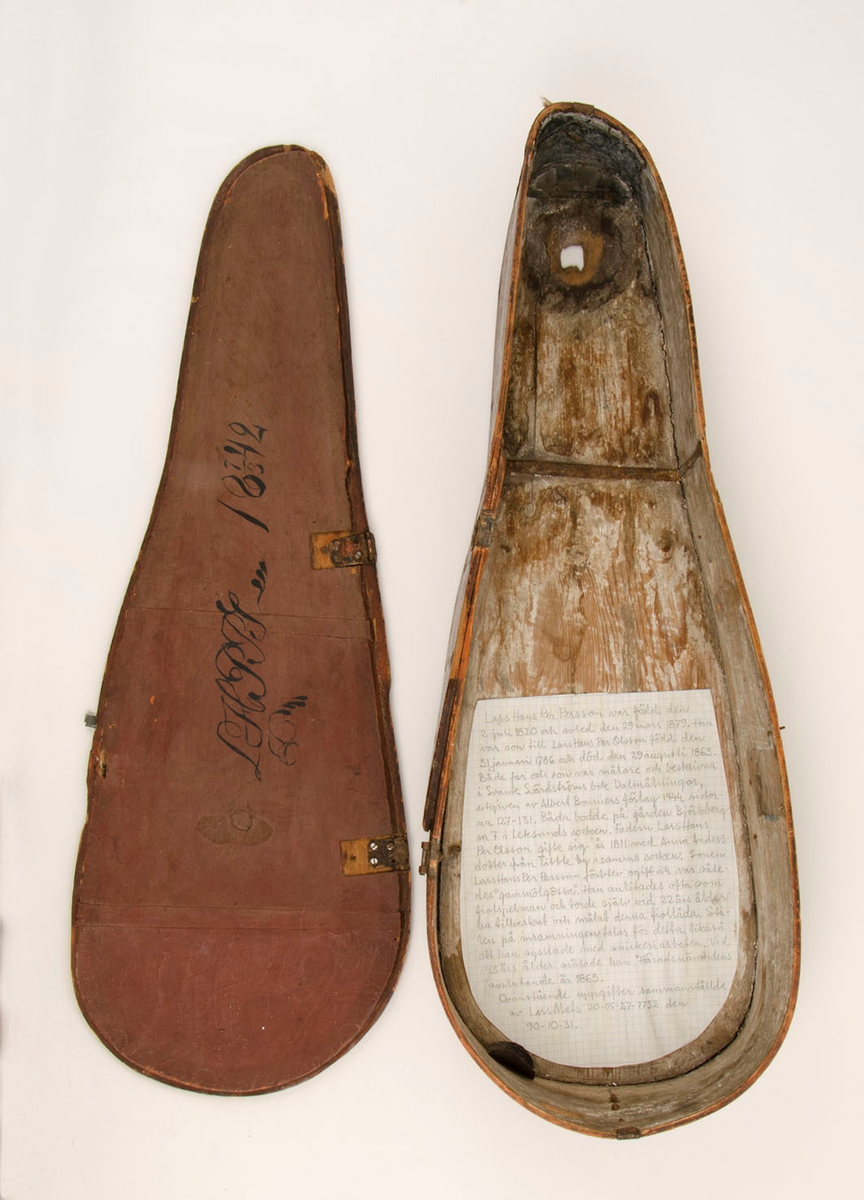 LHPPS 18 7/3 42
Lars Hans Per Persson var född den
2 juli 1820 och avled den 29 mars 1879. Han
var son till Lars Hans Per Olsson född den
31 januari 1786 och död den 29 augusti 1863.
Både far och son var målare och beskrivna
i Svante Svärdströms bok Dalmålningar,
utgiven av Albert Bonniers förlag 1944, sidor-
na 127-131. Båda bodde på gården Björkberg
nr 7 i Leksands socken. Fadern Lars Hans
Per Olsson gifte sig år 1811 med Anna
dotter från Tibble by i samma socken. Sonen
Lars Hans Per Persson förblev ogift och var såle-
des "gammölgösse". Han anlitades ofta som
fiolspelman och torde själv vid 22 års ålder
ha tillverkat och målat denna fiollåda.
på inramningen talar för detta, likaså
att han sysslade med snickeriarbeten. Vid
43 års ålder målade han "Häradsnämndens
avslutande år 1863.
Ovanstående uppgifter sammanställde
av Lars Mats 20-05-27-7732 den
90-10-31.